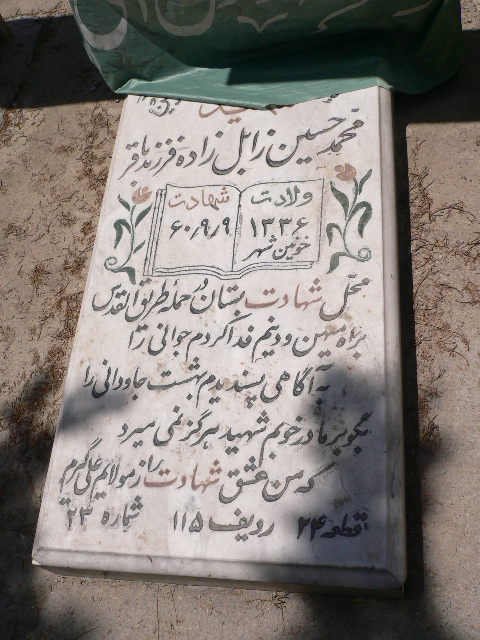 شهید
محمد حسین زابل زاده فرزند باقر
ولادت
۱۳۳۶
خونین شهر
شهادت
۶۰/۹/۹
محل شهادت بستان در حمله طریق القدس
براه میهن و دینم فدا کردم جوانی را
به آگاهی پسندیدم بهشت جاودانی را
بگو بر مادر خوبم شهید هرگز نمی میرد
که من عشق شهادت را ز مولایم علی گیرم
قطعه ۲۴ ردیف ۱۱۵ شماره ۲۳